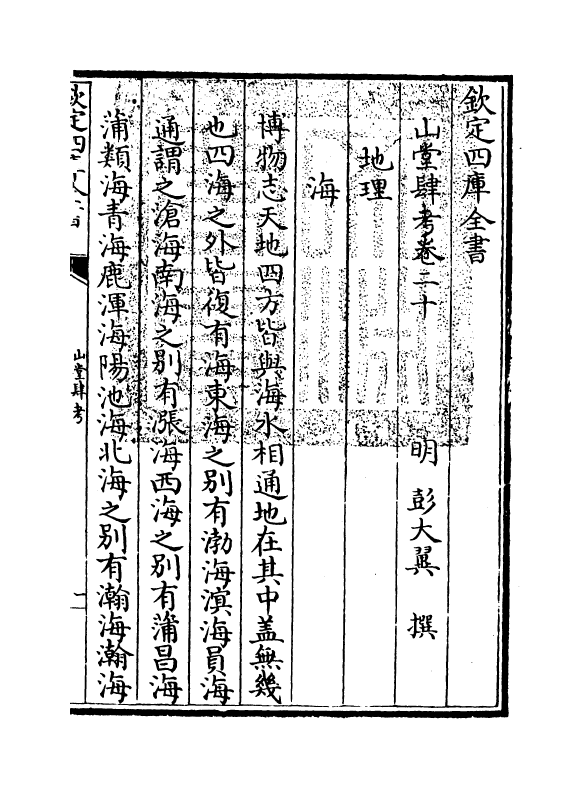 欽定四庫全書
山堂肆考卷二十
明 彭大翼 撰
地理
海
博物志天地四方皆與海水相通地在其中蓋無幾
也四海之外皆復有海東海之別有渤海溟海員海
通謂之滄海南海之別有漲海西海之別有蒲昌海
蒲類海青海鹿渾海陽池海北海之別有瀚海瀚海
山堂肆考